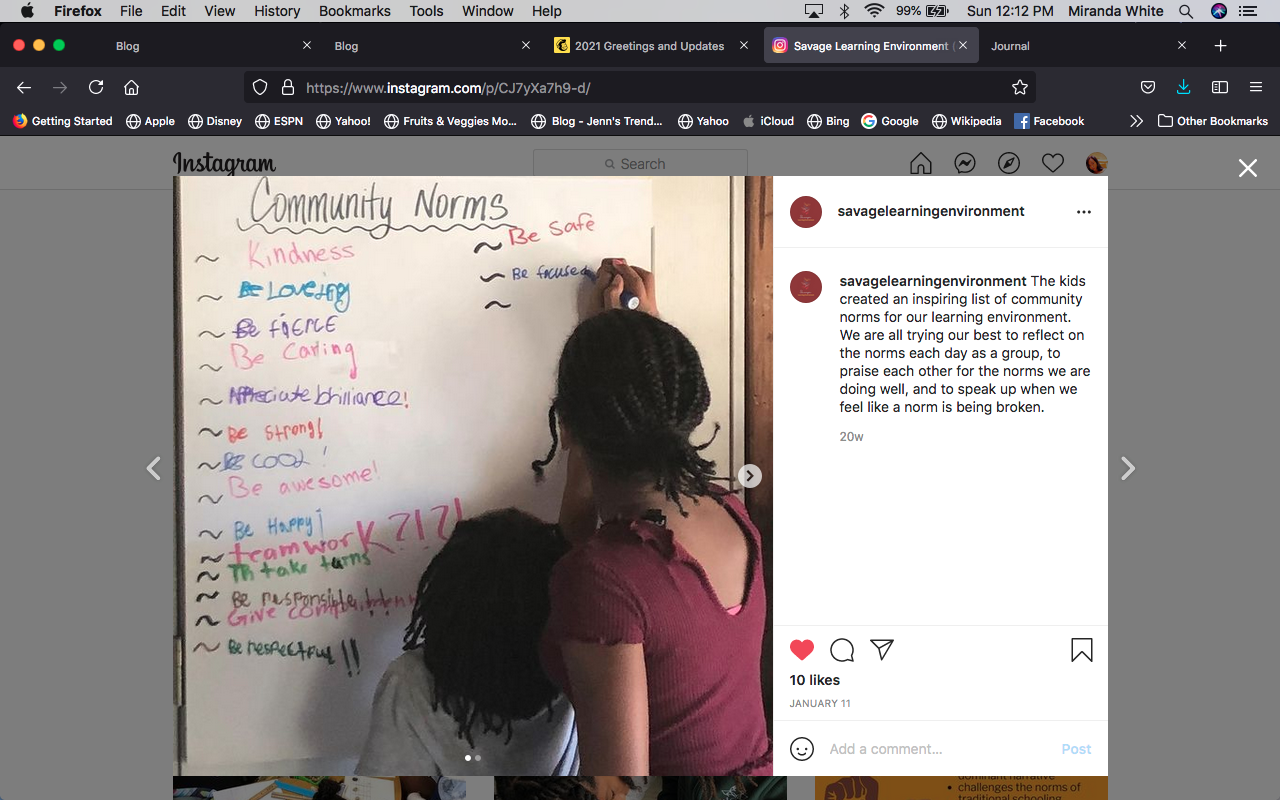 Firefox File Edit View History Bookmarks Tools Window Help 99% Sun 12:12 PM Miranda White
Blog Blog 2021 Greetings and Updates Savage Learning Environment ( Journal
https://www.instagram.com/p/CJ7yXa7h9-d/
Getting Started Apple Disney ESPN Yahoo! Fruits & Veggies Mo... Blog - Jenn's Trend... Yahoo iCloud Bing Google Wikipedia Facebook Other Bookmarks
Instagram Search
Community Norms
~ Kindness
~ Be Loveing
~ Be fierce
~ Be Caring
~ Appreciate brilliance!
~ Be strong!
~ Be cool!
~ Be awesome!
~ Be Happy!
~ teamwork?!?!
~ take turns
~ Be responsible
~ Give
~ Be respectful!!
~ Be safe
~ Be focused
~
savagelearningenvironment
savagelearningenvironment The kids
created an inspiring list of community
norms for our learning environment.
We are all trying our best to reflect on
the norms each day as a group, to
praise each other for the norms we are
doing well, and to speak up when we
feel like a norm is being broken.
20w
10 likes
JANUARY 11
Add a comment... Post
dominant narrative
• challenges the norms of
traditional schooling